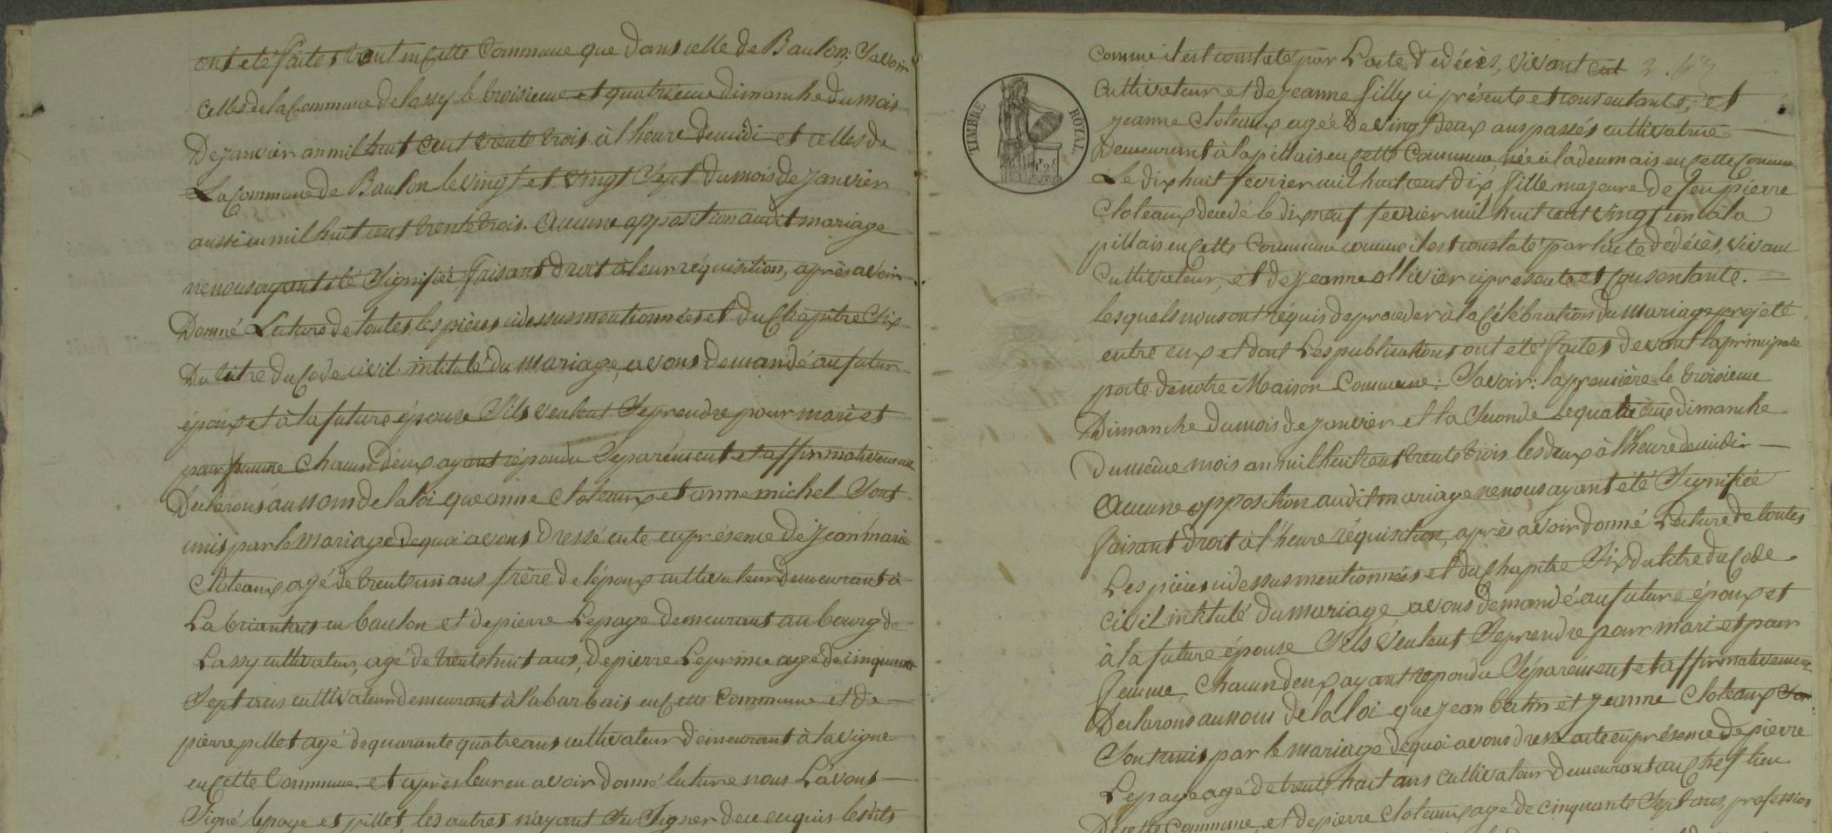 ont été faites tant en cette Commune que dans celle de Baulon; Savoir
Celles de la Commune de lassy le troisieme et quatrieme dimanche du mois
De janvier an mil huit cent trente trois à l'heure de midi et celles de
La Commune de Baulon le vingt et vingt Sept du mois de janvier
aussi an mil huit cent trente trois. Aucune opposition audit mariage
ne nous ayant été Signifiée faisant droit à leur réquisition, après avoir
Donné Lecture de toutes les pièces ci dessus mentionnées et du Chapitre Six
Du titre du Code civil intitulé du Mariage, avons demandé au futur
époux et à la future épouse S'ils veulent Se prendre pour mari et
pour femme Chacun d'eux ayant répondu Séparément et affirmativement
Déclarons au nom de la loi que Cloteaux et anne michel Sont
unis par le mariage de quoi avons Dressé acte en présence de jean marie
Cloteaux agé de trente un ans frère de l'époux cultivateur demeurant à
La briantais en baulon et de pierre Lepage demeurant au bourg de
Lassy cultivateur, agé de trente huit ans, de pierre Leprince agé de cinquante
Sept ans cultivateur demeurant à la barbais en cette Commune et de
pierre pillet agé de quarante quatre ans cultivateur demeurant à la vigne
en Cette Commune. et après leur en avoir donné lecture nous L'avons
Signé lepage et pillet, les autres n'ayant Su Signer de ce enquis lesdits
TIMBRE ROYAL
Comme il est constaté par L'acte de décès, vivant
Cultivateur et de jeanne filly ci présente et consentante, et
jeanne Cloteaux agée de vingt deux ans passés cultivatrice
Demeurant à la pillais en cette Commune née à la deumais en cette Commune
Le dix huit fevrier mil huit cent dix fille majeure de feu pierre
Cloteaux décédé le dix neuf fevrier mil huit cent vingt un à la
pillais en Cette Commune comme il est constaté par l'acte de décès, vivant
Cultivateur, et de jeanne ollivier ci présente et Consentante.
lesquels nous ont réquis de proceder à la Célébration du Mariage projeté
entre eux et dont Les publications ont été faites devant la principale
porte de notre Maison Commune; Savoir: la première le troisieme
Dimanche du mois de janvier et la Seconde Le quatrieme dimanche
du même mois an mil huit cent trente trois les deux à l'heure de midi
Aucune opposition audit mariage ne nous ayant été Signifiée
faisant droit à l'heure réquisition, après avoir donné Lecture de toutes
Les pièces ci dessus mentionnées et du Chapitre Six du titre du Code
Civil intitulé du Mariage avons demandé au future époux et
à la future épouse S'ils veulent Se prendre pour mari et pour
femme Chacun d'eux ayant répondu Séparément et affirmativement
Déclarons au nom de la loi que jean et jeanne Cloteaux
Sont unis par le mariage de quoi avons dressé acte en présence de pierre
Lepage agé de trente huit ans cultivateur demeurant au Chef lieu
De cette Commune, et de pierre Cloteaux agé de cinquante Sept ans, profession